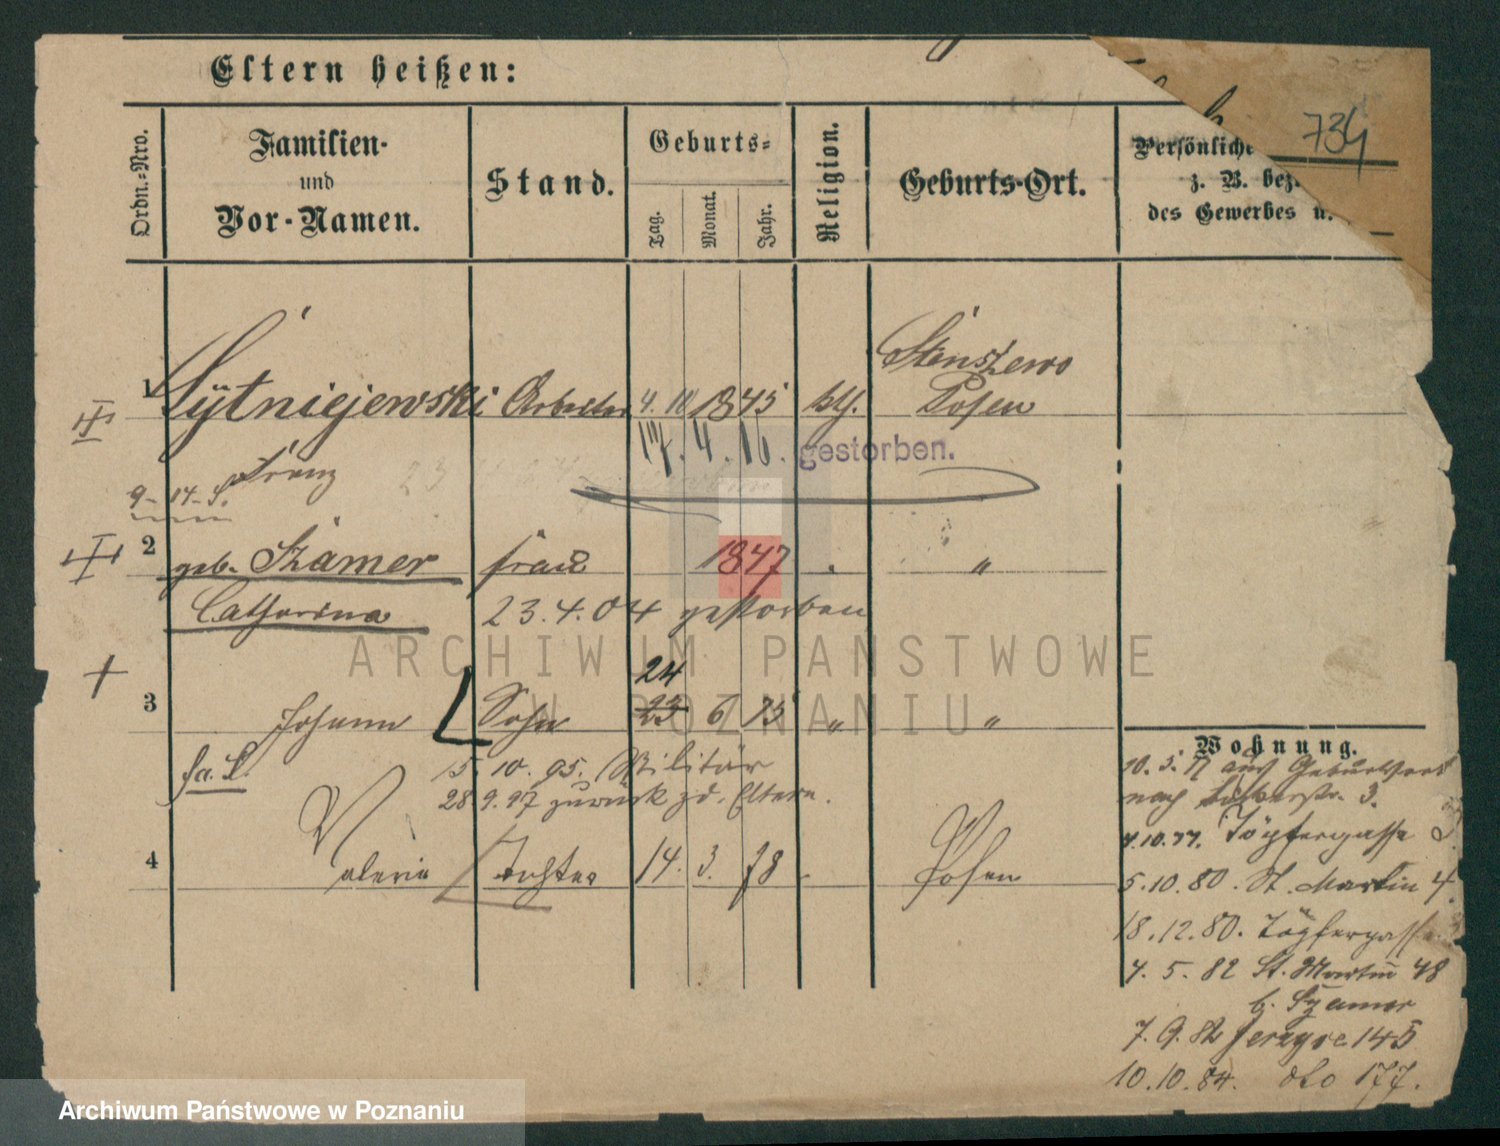 734
Eltern heißen:
Ordn.-Nro.
Familien-
und
Vor-Namen.
Stand.
Geburts-
Tag.
Monat.
Jahr.
Religion.
Geburts-Ort.
Persönliche
z. B. bez.
des Gewerbes u.
Stenszewo
1 Sÿtniejewski Arbeiter 4. 10 1845 kth. Posen
17. 4. 16. gestorben.
Franz
9-14-S.
2 geb. Szamer Frau 1847 "
Catharina 23.4.04 gestorben
24
3 Johann Sohn 23 6 75 " "
fa. L.
15. 10. 95. Militär
28. 9. 97 zurück z d. Eltern.
4 Valeria Tochter 14. 3. 78 Posen
Wohnung.
10. 5. 77 aus Geburtsort
nach 3.
4.10.77. Töpfergasse
5.10.80. St. Martin 4.
18.12.80. Töpfergasse
4. 5. 82 St. Martin 48
b. Szamer
7. 9. 82 Jerzyce 145
10.10.84. dto 177.
ARCHIWUM PAŃSTWOWE
W POZNANIU
Archiwum Państwowe w Poznaniu